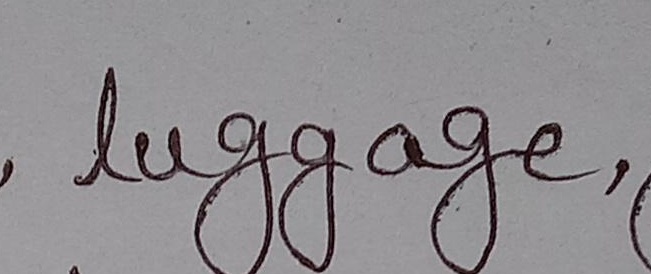 , luggage,